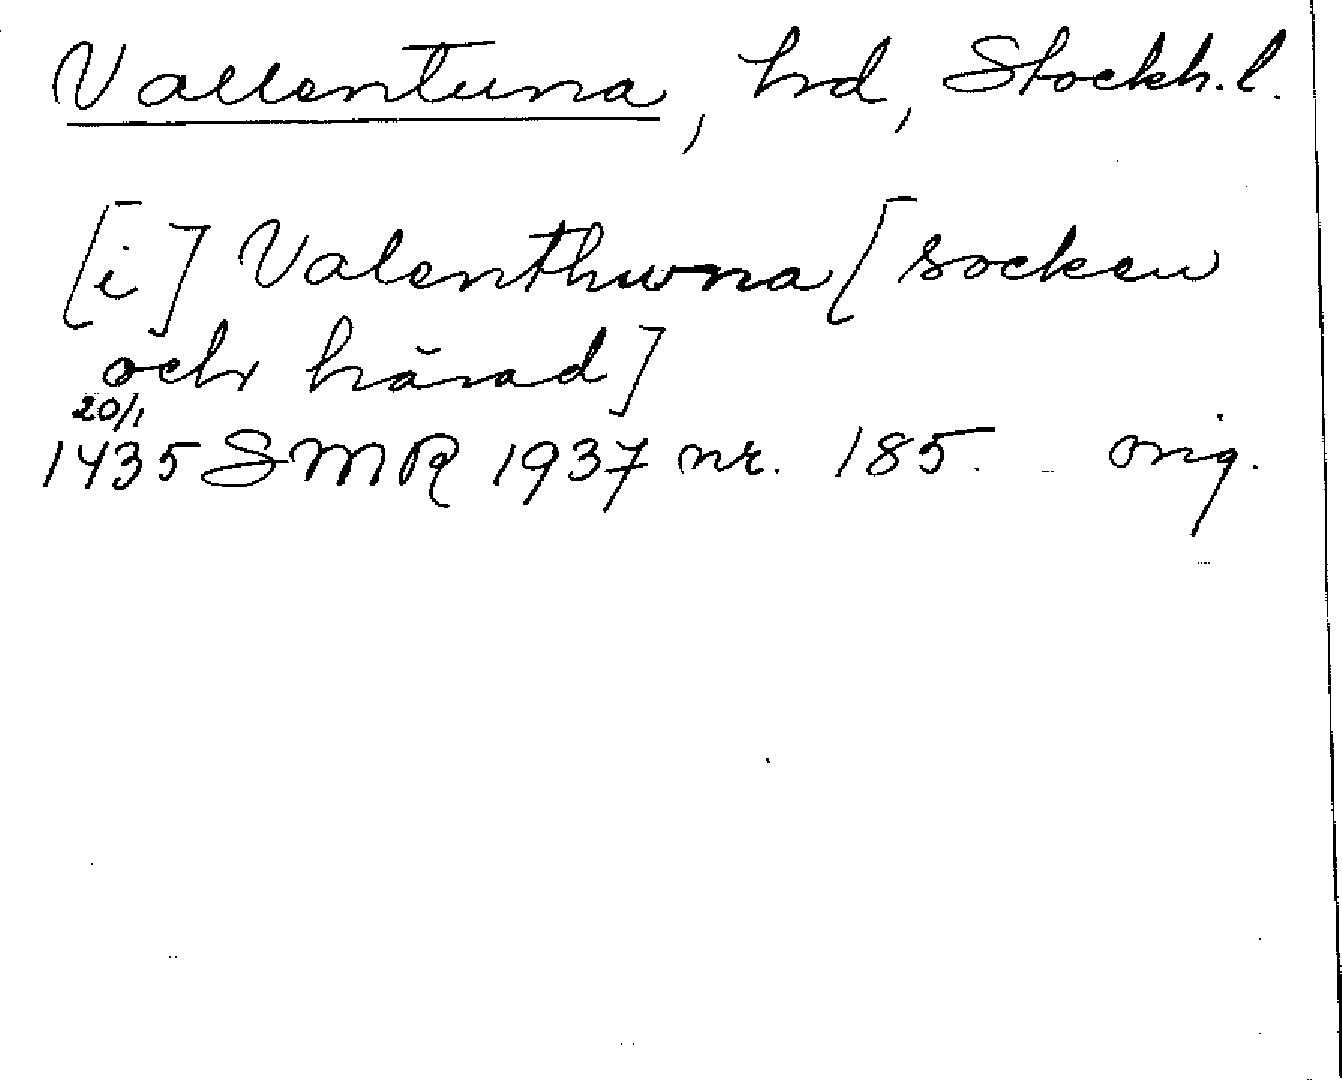 Vallentuna, hd, Stockh. l.
[i] Valenthwna [socken
och härad]
20/1
1435 SMR 1937 nr. 185. orig.